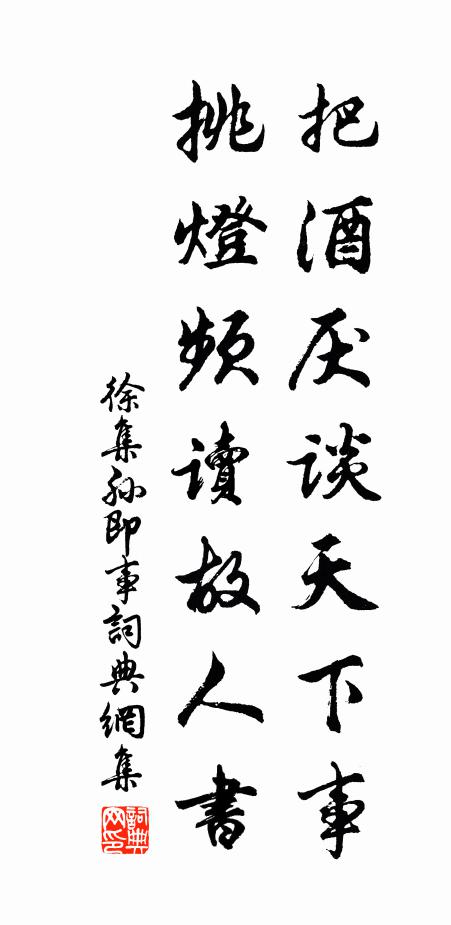 把酒厌谈天下事
挑燈频讀故人書
徐集孙即事詞典網集
詞典网印